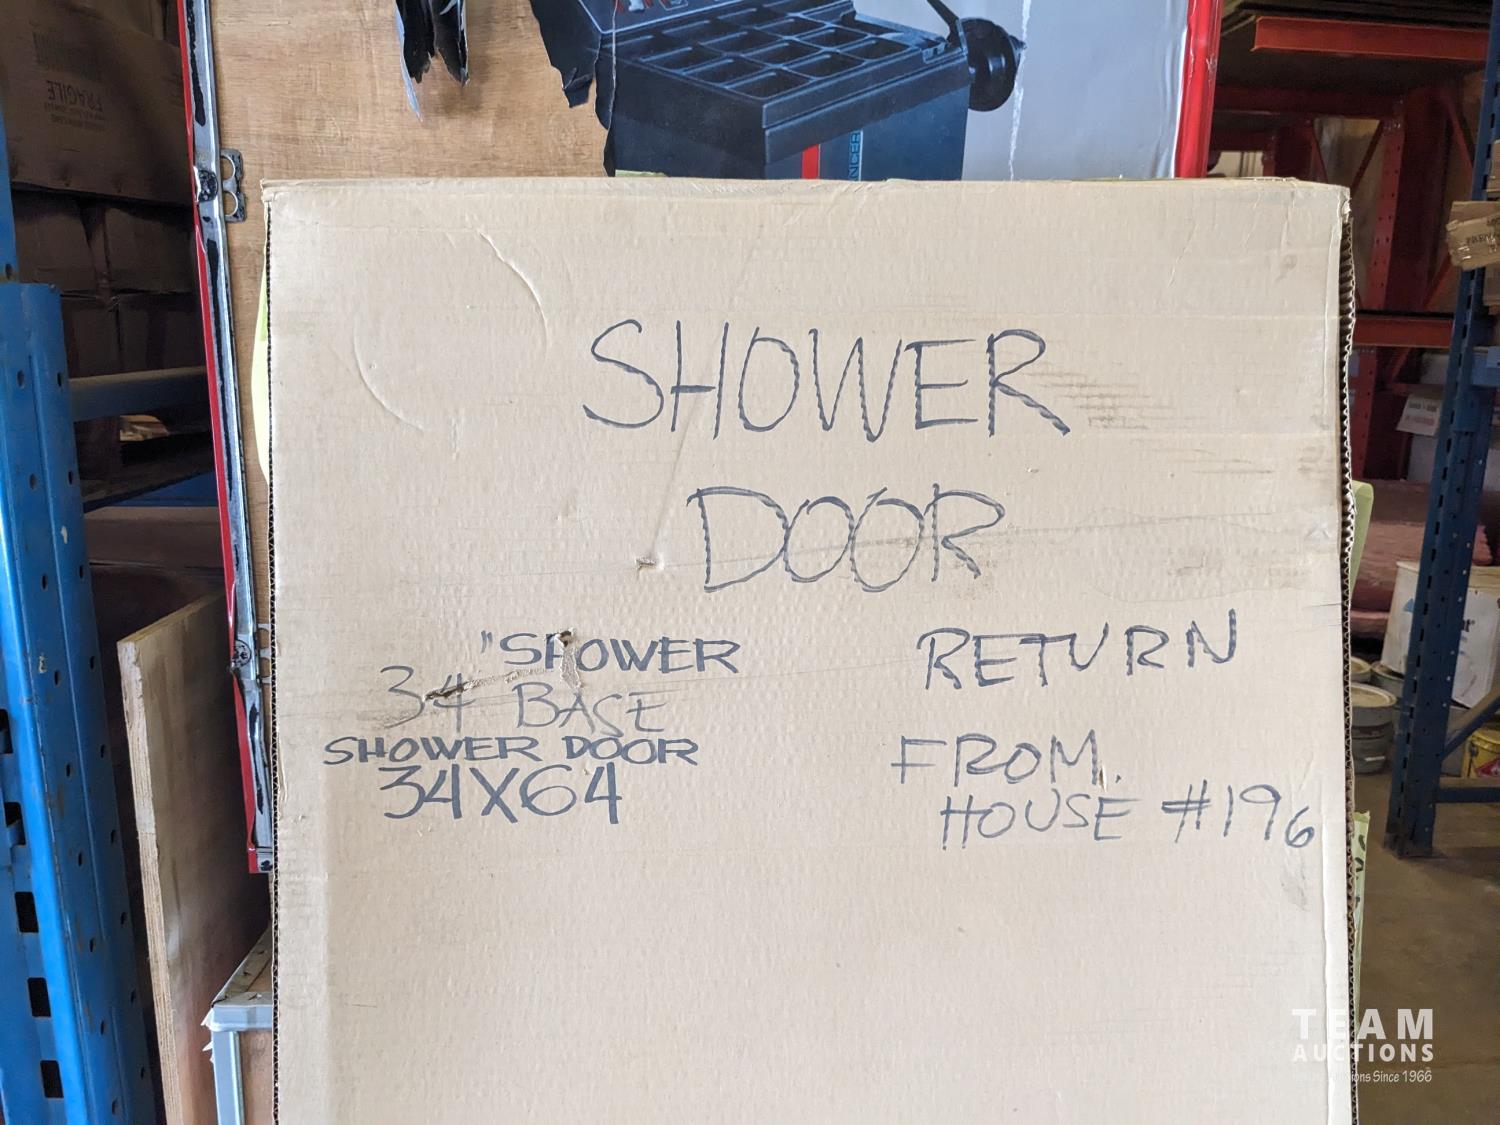 FRAGILE
NCER
SHOWER
DOOR
"SHOWER
34 BASE
SHOWER DOOR
34X64
RETURN
FROM.
HOUSE #196
TEAM
AUCTIONS
ons Since 1966